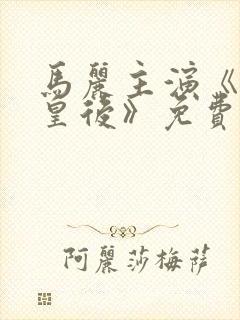 馬麗主演《
皇後》免費
阿麗莎梅薩